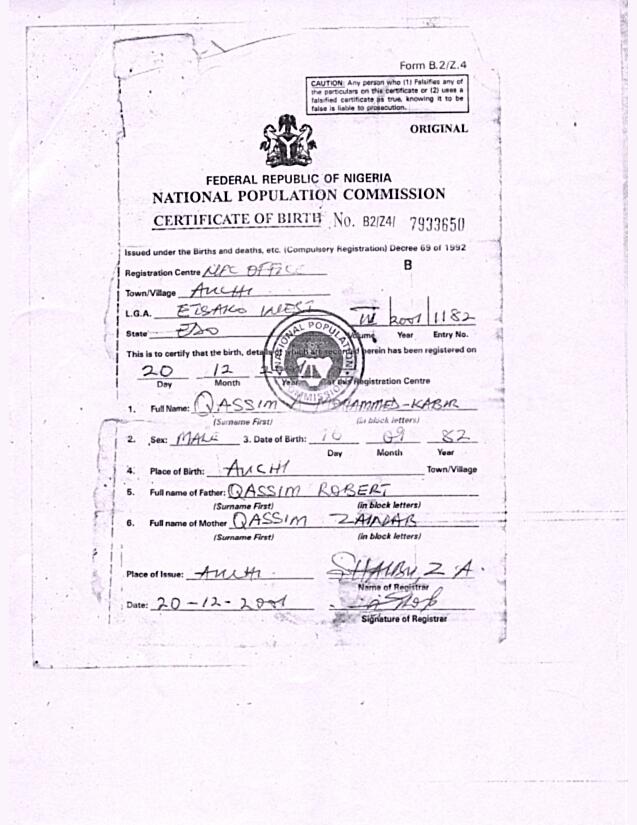 Form B.2/Z.4
CAUTION: Any person who (1) Falsifies any of
the particulars on this certificate or (2) uses a
falsified certificate as true, knowing it to be
false is liable to prosecution.
ORIGINAL
FEDERAL REPUBLIC OF NIGERIA
NATIONAL POPULATION COMMISSION
CERTIFICATE OF BIRTH No. B2/Z4/ 7933650
Issued under the Births and deaths, etc. (Compulsory Registration) Decree 69 of 1992
B
Registration Centre NPC OFFICE
Town/Village AUCHI
L.G.A. ETSAKO WEST
IV 2001 1182
State EDO
Volume Year Entry No.
NATIONAL POPULATION COMMISSION
This is to certify that the birth, details of which are recorded herein has been registered on
20 12
Day Month Year at this Registration Centre
1. Full Name: QASSIM MOHAMMED-KABIR
(Surname First) (in block letters)
2. Sex: MALE 3. Date of Birth: 09 82
Day Month Year
4. Place of Birth: AUCHI Town/Village
5. Full name of Father: QASSIM ROBERT
(Surname First) (in block letters)
6. Full name of Mother QASSIM ZAINAB
(Surname First) (in block letters)
Place of Issue: AUCHI
Z. A.
Name of Registrar
Date: 20-12-2001
Signature of Registrar